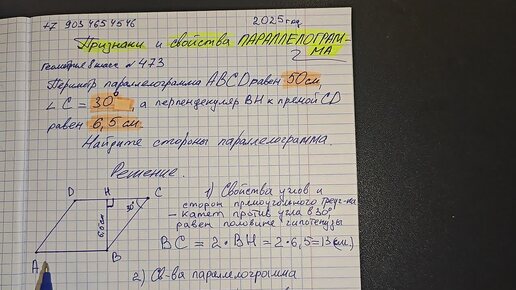 +7 903 465 45 46
2025 год
Признаки и свойства ПАРАЛЛЕЛОГРАМ-
МА
Геометрия 8 класс № 473
Периметр параллелограмма ABCD равен 50 см,
∠ C = 30°, а перпендикуляр BH к прямой CD
равен 6,5 см.
Найдите стороны параллелограмма.
Решение.
D H C
30°
6,5 см
A B
1) Свойства углов и
сторон прямоугольного треуг-ка
– катет против угла в 30°
равен половине гипотенузы
BC = 2 · BH = 2 · 6,5 = 13 (см)
2) Св-ва параллелограмма